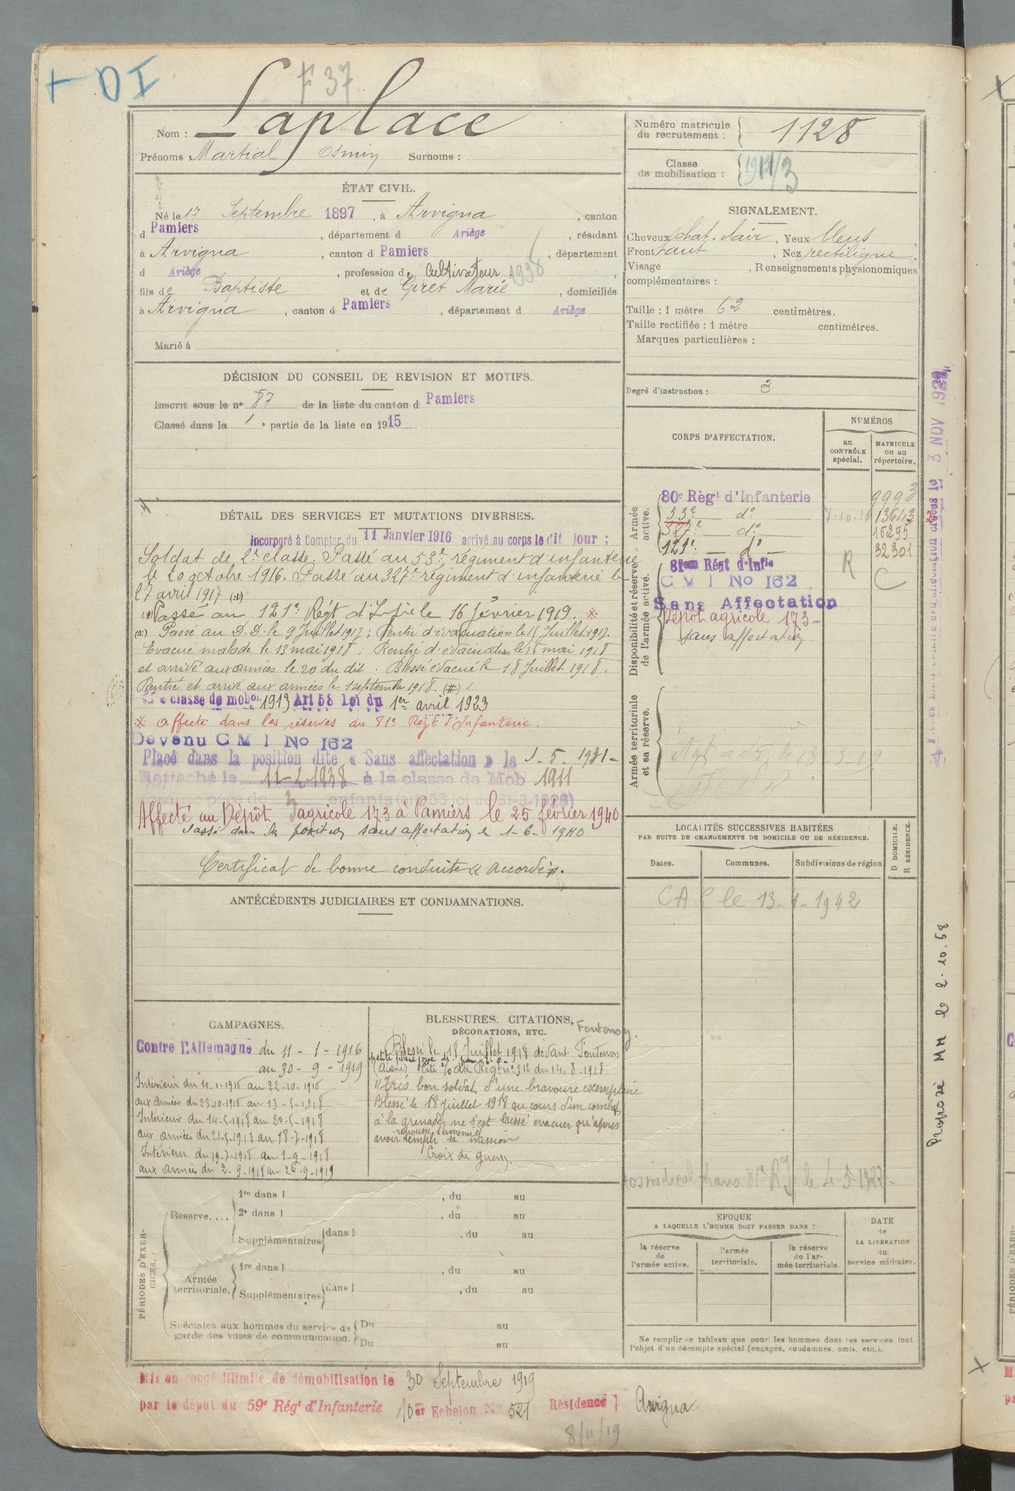 + DI
F 37
Nom : Laplace
Prénoms Martial Osmin Surnoms :
Numéro matricule du recrutement : 1128
Classe de mobilisation :
ÉTAT CIVIL.
Né le 17 Septembre 1897, à Arvigna, canton
d Pamiers, département d Ariège, résidant
à Arvigna, canton d Pamiers, département
d Ariège, profession de cultivateur 1938
fils de Baptiste et de Giret Marie, domiciliés
à Arvigna, canton d Pamiers, département d Ariège
Marié à
SIGNALEMENT.
Cheveux chat. clair, Yeux bleus,
Front haut, Nez rectiligne,
Visage , Renseignements physionomiques
complémentaires :
Taille : 1 mètre 62 centimètres.
Taille rectifiée : 1 mètre centimètres.
Marques particulières :
Degré d'instruction : 3
DÉCISION DU CONSEIL DE REVISION ET MOTIFS.
Inscrit sous le n° 87 de la liste du canton d Pamiers
Classé dans la 1 e partie de la liste en 1915
DÉTAIL DES SERVICES ET MUTATIONS DIVERSES.
Incorporé à Compter du 11 Janvier 1916 arrivé au corps le dit jour ;
Soldat de 2e classe. Passé au 53e régiment d'infanterie
le 20 octobre 1916. Passé au 327e régiment d'infanterie le
27 avril 1917 (#)
(#) Passé au 121e Régt d'Infie le 16 Février 1919. *
(#) Passé au D.D. le 9 Juillet 1917 ; Rentré d'évacuation le 15 Juillet 1917.
Evacué malade le 13 mai 1918. Rentré d'évacuation le 15 mai 1918
et arrivé aux armées le 20 du dit. Blessé évacué le 18 Juillet 1918.
Rentré et arrivé aux armées le 1 septembre 1918. (#)
classe de mobon 1913 Art 58 Loi du 1er avril 1933
* affecté dans les réserves au 81e Régt d'Infanterie.
Devenu C M I No 162
Placé dans la position dite « Sans affectation » le 1-5-1931-
Rattaché le 11-1-1938 à la classe de Mob 1911
père de 3 enfants
Affecté au Dépôt agricole 173 à Pamiers le 25 février 1940
Passé dans la position sans affectation le 1-6-1940
Certificat de bonne conduite « accordé ».
CORPS D'AFFECTATION.
NUMÉROS
AU CONTRÔLE spécial.
MATRICULE ou au répertoire.
Armée active.
80e Règt d'Infanterie 9998
53e d° 13643
327e d° 16295
121e d° 32301
Disponibilité et réserve de l'armée active.
81em Régt d'Infie R C
C M I No 162
Sans Affectation
Dépôt agricole 173-
sans affectation
Armée territoriale et sa réserve.
LOCALITÉS SUCCESSIVES HABITÉES
PAR SUITE DE CHANGEMENTS DE DOMICILE OU DE RÉSIDENCE.
Dates. Communes. Subdivisions de région
D DOMICILE. R RÉSIDENCE.
CAC le 13-1-1942
ANTÉCÉDENTS JUDICIAIRES ET CONDAMNATIONS.
CAMPAGNES.
Contre l'Allemagne du 11-1-1916
au 30-9-1919
Intérieur du 11-1-1916 au 22-10-1916
aux armées du 23-10-1916 au 13-5-1918
Intérieur du 14-5-1918 au 20-5-1918
aux armées du 21-5-1918 au 18-7-1918
Intérieur du 19-7-1918 au 1-9-1918
aux armées du 2-9-1918 au 26-9-1919
BLESSURES, CITATIONS,
DÉCORATIONS, ETC.
Fontenoy.
Blessé le 18 Juillet 1918 devant Fontenoy
(Aisne) Cité % du Régt n° 314 du 14-8-1918
"Très bon soldat, d'une bravoure exemplaire
Blessé le 18 juillet 1918 au cours d'un combat
à la grenade, ne s'est laissé évacuer qu'après
avoir rempli sa mission
Croix de guerre.
PÉRIODES D'EXERCICES.
Réserve....
1re dans l , du au
2e dans l , du au
Supplémentaires dans l , du au
Armée territoriale.
1re dans l , du au
Supplémentaires dans l , du au
Spéciales aux hommes du service de garde des voies de communication.
Du au
Du au
EPOQUE
A LAQUELLE L'HOMME DOIT PASSER DANS :
la réserve de l'armée active.
l'armée territoriale.
la réserve de l'armée territoriale.
DATE de LA LIBÉRATION du service militaire.
Ne remplir ce tableau que pour les hommes dont les services font
l'objet d'un décompte spécial (engagés, condamnés, omis, etc.).
Proposé MM le 2.10.58
Mis en congé illimité de démobilisation le 30 Septembre 1919
par le dépôt du 59e Régt d'Infanterie 10e Echelon No 521 Résidence : Arvigna
8/11/19